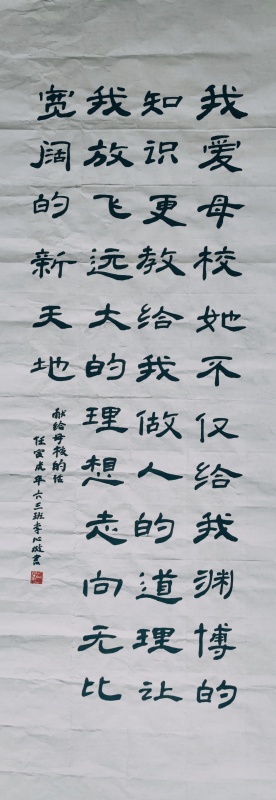 我爱母校她不仅给我渊博的
知识更教给我做人的道理让
我放飞远大的理想志向无比
宽阔的新天地
献给母校的话
壬寅虎年六三班李心书